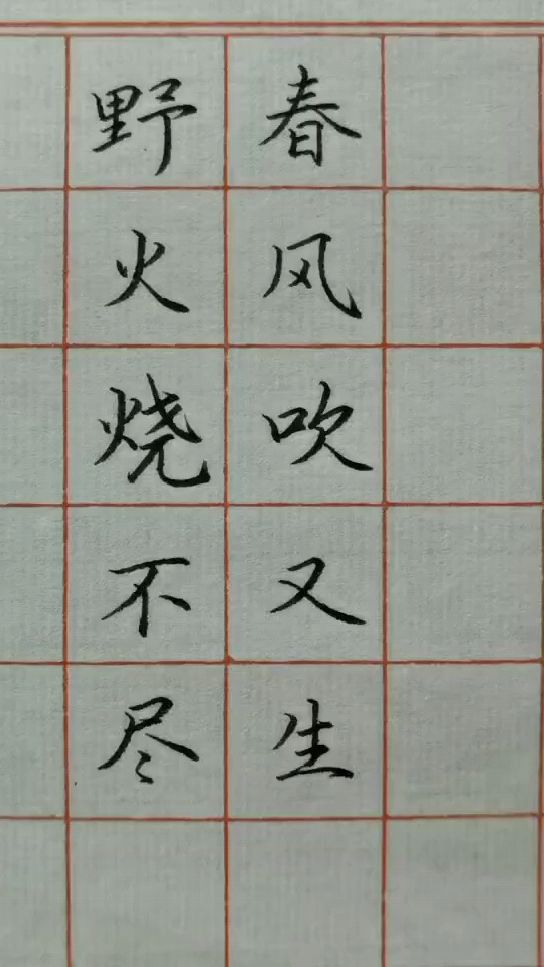 野火烧不尽
春风吹又生